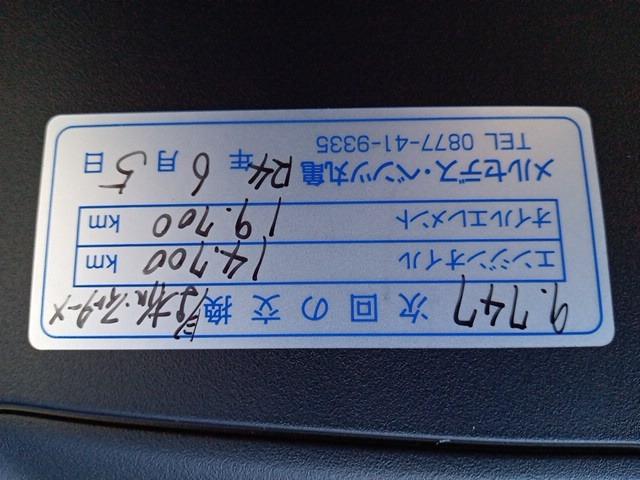 9.747 次回の交換
エンジンオイル 14.700 km
オイルエレメント 19.700 km
メルセデス・ベンツ丸亀 R4年 6月 5日
TEL 0877-41-9335